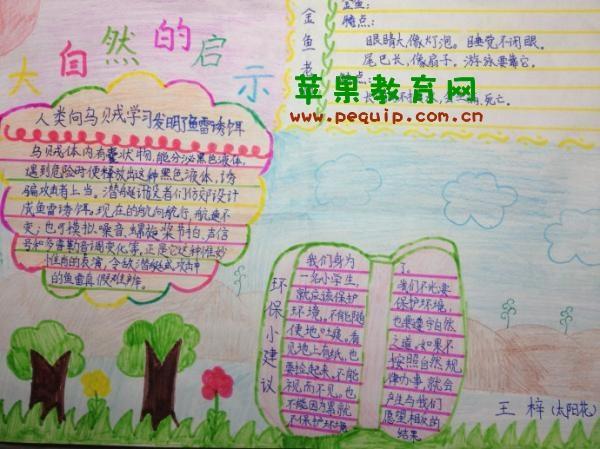 大自然的启示
人类向乌贼学习发明了鱼雷诱饵
乌贼体内有囊状物,能分泌黑色液体,
遇到危险时便释放出这种黑色液体,诱
骗攻击者上当。潜艇设计者们仿效设计
成鱼雷诱饵。
变;也可模拟噪音、螺旋桨节拍、声信
号和多普勒音调变化等,正是它这种惟妙
的表演,令敌潜艇或攻击中
的鱼雷真假难辨
金鱼:
特点:
眼睛大,像灯泡。睡觉不闭眼。
尾巴长,像扇子。游泳要靠它。
死亡。
金鱼
苹果教育网
www.pequip.com.cn
环保小建议
我们身为
一名小学生,
就应该保护
环境。不能随
便地吐痰。看
见地上有纸,也
要捡起来,不能
视而不见。也
不能因为累就
不保护环境
了。
我们不光要
保护环境,
也要遵守自然
之道,如果不
按照自然规
律办事,就会
产生与我们
愿望相反的
结果
王梓(太阳花)